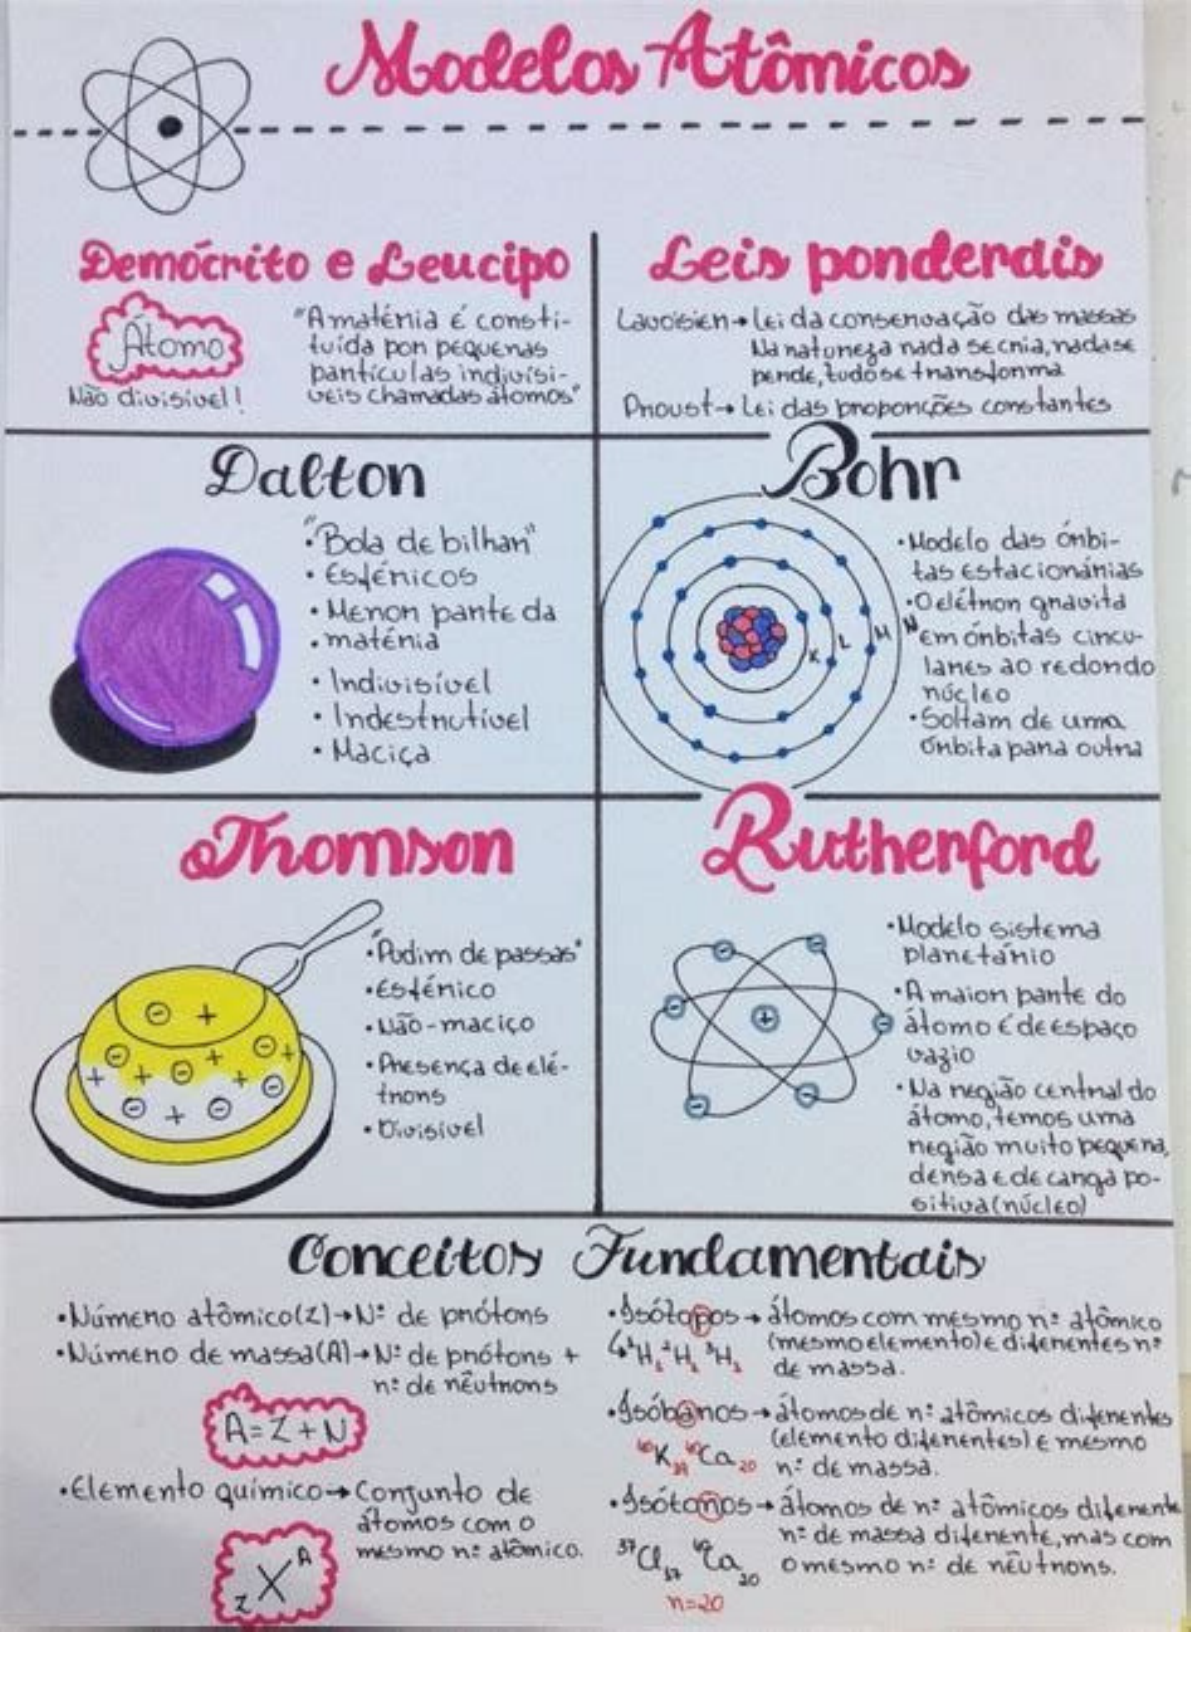 Modelos Atômicos
Demócrito e Leucipo
Átomo
Não divisivel!
"A matéria é consti-
tuída por pequenas
partículas indivisí-
veis chamadas átomos"
Leis ponderais
Lavoisier→Lei da conservação das massas
Na natureza nada se cria, nada se
perde, tudo se transforma
Proust→Lei das proporções constantes
Dalton
• "Bola de bilhar"
• Esféricos
• Menor parte da
• matéria
• Indivisível
• Indestrutível
• Maciça
Bohr
K L M N
• Modelo das órbi-
tas estacionárias
• O elétron gravita
em órbitas circu-
lares ao redor do
núcleo
• Soltam de uma
órbita para outra
Thomson
• "Pudim de passas"
• Esférico
• Não-maciço
• Presença de elé-
trons
• Divisível
Rutherford
• Modelo sistema
planetário
• A maior parte do
átomo é de espaço
vazio
• Na região central do
átomo, temos uma
região muito pequena,
densa e de carga po-
sitiva (núcleo)
Conceitos Fundamentais
• Número atômico(Z)→Nº de prótons
• Número de massa(A)→Nº de prótons +
nº de nêutrons
A=Z+N
• Elemento químico→Conjunto de
átomos com o
mesmo nº atômico.
z X A
• Isótopos→átomos com mesmo nº atômico
(mesmo elemento) e diferentes nº
de massa.
↳ ¹H₁ ²H₁ ³H₁
• Isóbaros→átomos de nº atômicos diferentes
(elemento diferentes) e mesmo
nº de massa.
⁴⁰K₁₉ ⁴⁰Ca₂₀
• Isótonos→átomos de nº atômicos diferente
nº de massa diferente, mas com
o mesmo nº de nêutrons.
³⁷Cl₁₇ ⁴⁰Ca₂₀
n=20